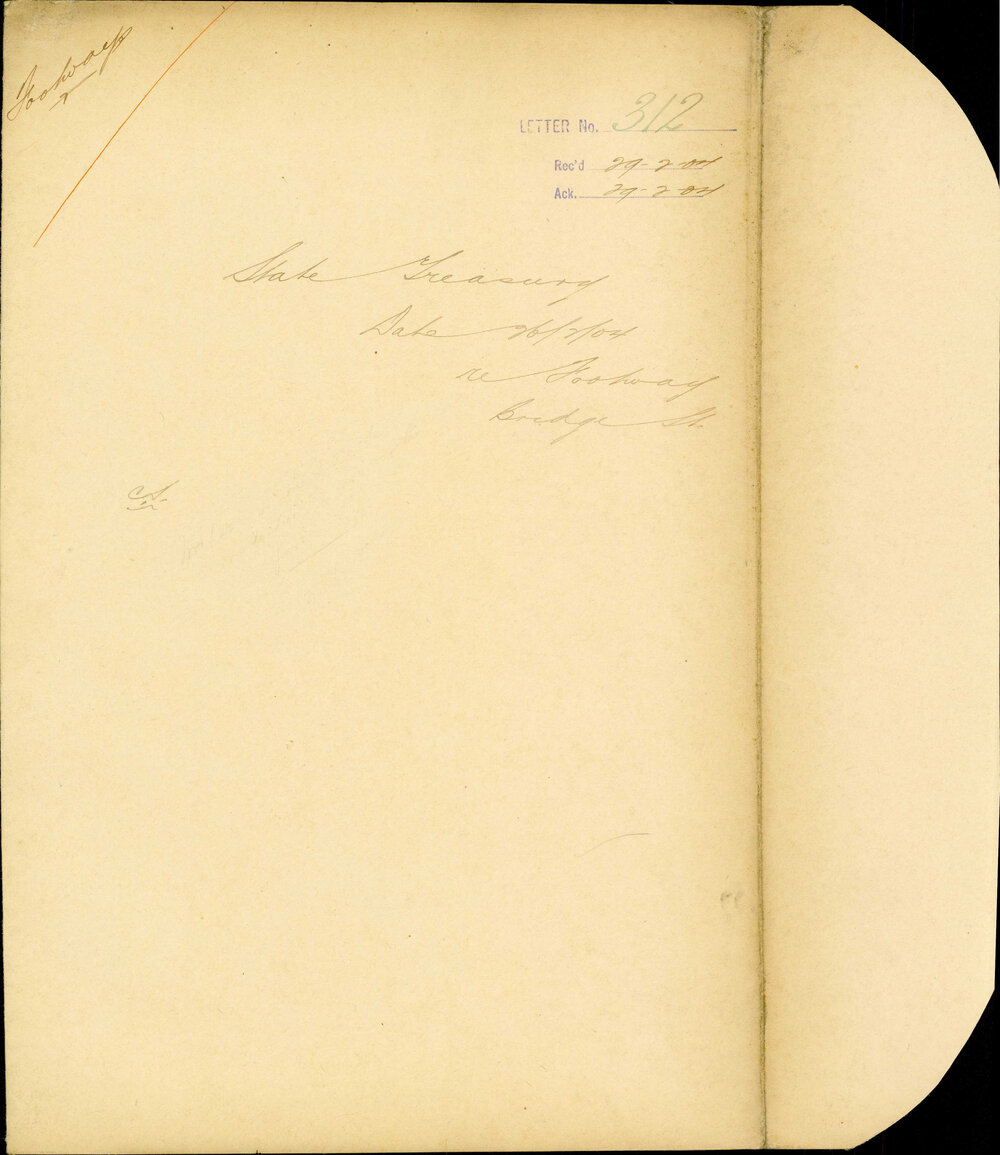 Footways
LETTER No. 312
Rec'd 29-2-04
Ack. 29-2-04
State Treasury
Date 26/2/04
re Footway
Bridge St.